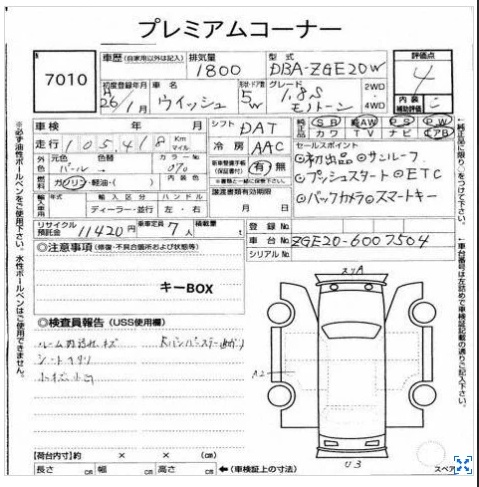 プレミアムコーナー
7010
車歴（自家用以外は記入） 排気量 型式 評価点
1800 DBA-ZGE20W 4
初度登録年月 車名 形状・ドア数 グレード 2WD・4WD 内装補助 C
H26/1月 ウィッシュ 5W 1.8S モノトーン
車検 年 月 シフト DAT 純正品 SB AW PS PW
走行 105,418 Km マイル 冷房 AAC カワ TV ナビ エアB
外色 元色 色替 カラーNo. 070 新車整備手帳（保証書付） 有・無
パール
セールスポイント
◎初出品◎サンルーフ
◎プッシュスタート◎ETC
◎バックカメラ◎スマートキー
燃料 ガソリン・軽油・（ ） 内装色 ※書類と一緒に保管下さい。
輸入車用 年式 輸入区分 ハンドル 譲渡書類有効期限
ディーラー・並行 左・右 月 日
リサイクル預託金 11420円 乗車定員 7人 積載量 t
登録No.
車台No. ZGE20-6007504
シリアルNo.
◎注意事項（修復・不具合箇所および状態等）
キーBOX
◎検査員報告（USS使用欄）
シート
小キズ小凹
スリA
A2
U3
【荷台内寸】約 × × (cm)
長さ cm 幅 cm 高さ cm ←（車検証上の寸法）
スペア
※必ず油性ボールペンをご使用下さい。水性ボールペンはご使用できません。
↑純正品に限り○をつけて下さい。
↑車台番号は左詰めで車検証記載の通りご記入下さい。